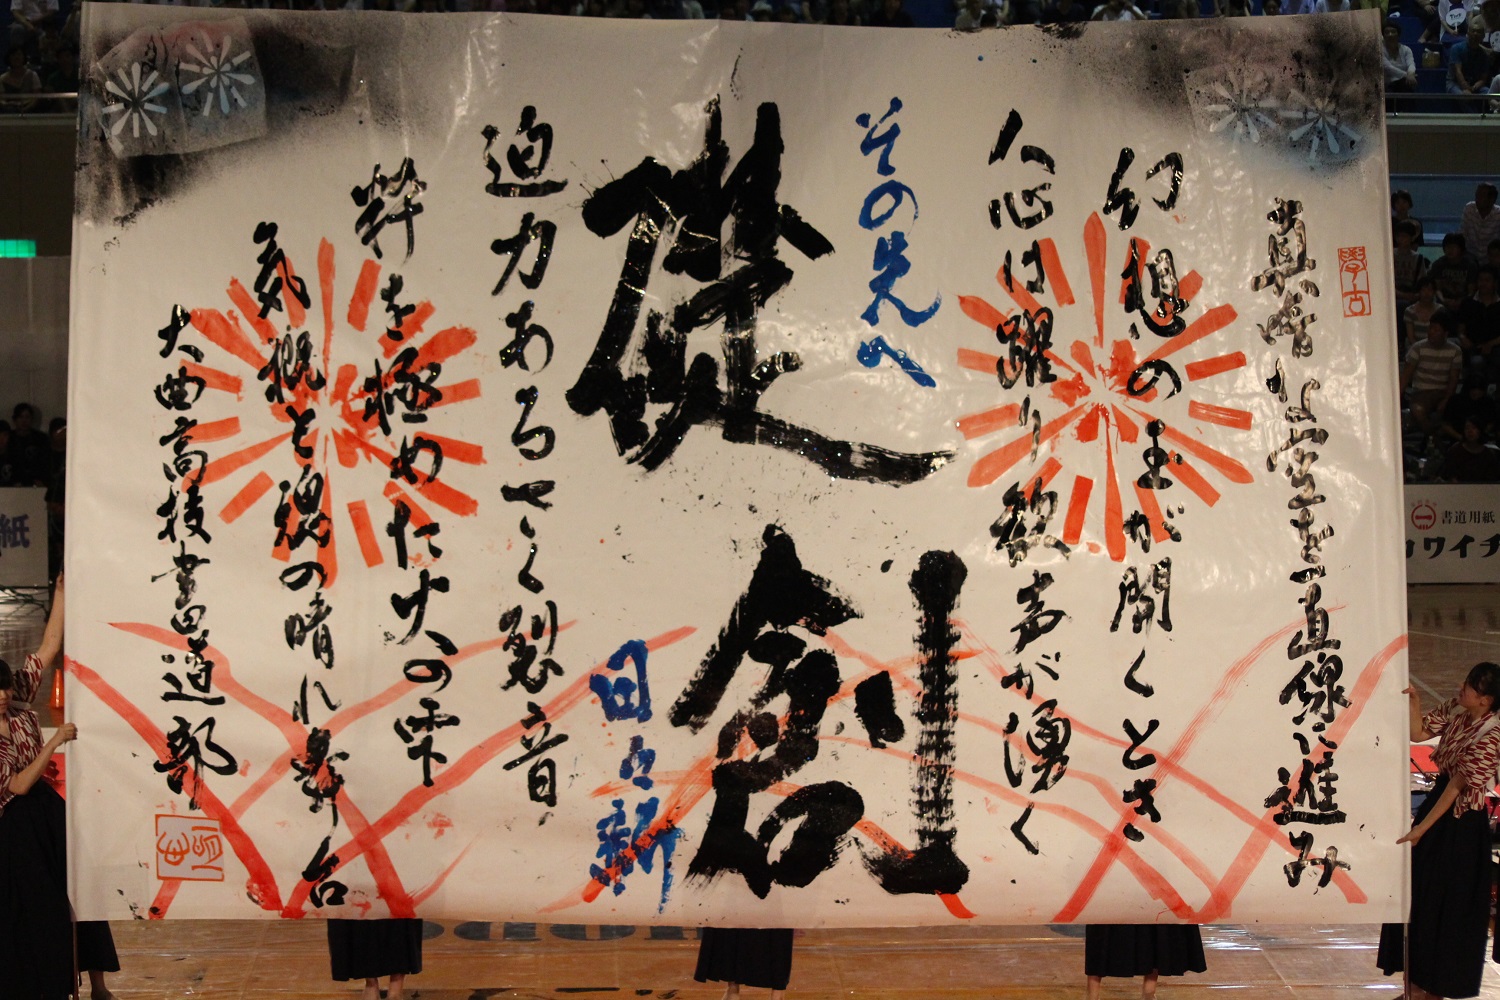 真暗な空を一直線に進み
幻想の玉が開くとき
人心は躍り歓声が湧く
その先へ
創
日々新
迫力あるさく裂音
粋を極めた火の雫
気概と魂の晴れ舞台
大曲高校書道部
書道用紙
ワイチ
紙